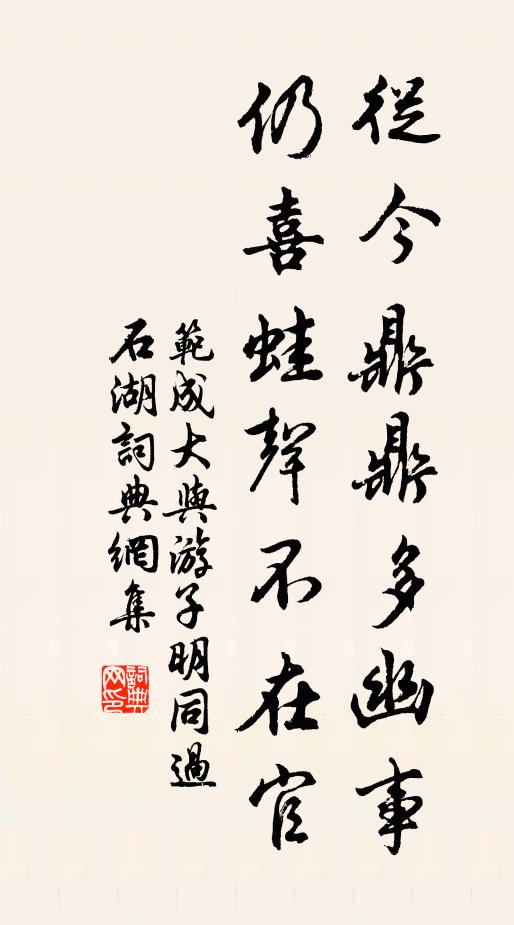 從今鼎鼎多幽事
仍喜蛙聲不在官
範成大與游子明同過
石湖詞典網集
詞典網印